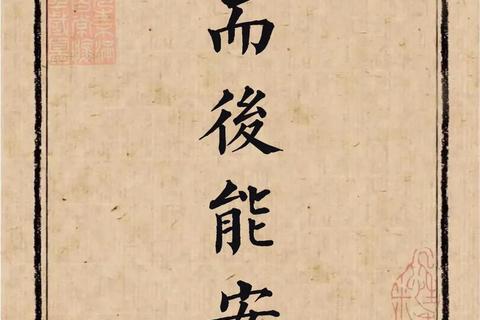 而後能安